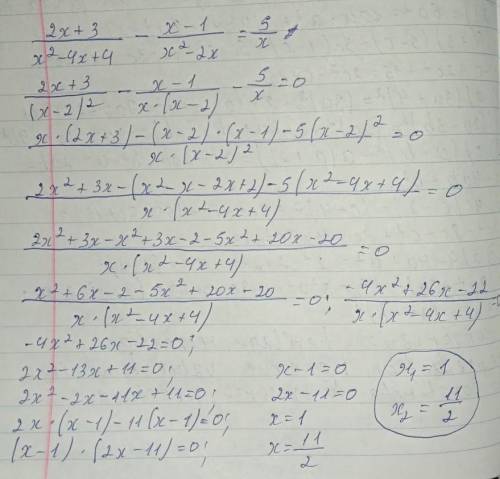 (2x+3)/(x²-4x+4) - (x-1)/(x²-2x) = 5/x
(2x+3)/(x-2)² - (x-1)/(x·(x-2)) - 5/x = 0
(x·(2x+3)-(x-2)·(x-1)-5(x-2)²)/(x·(x-2)²) = 0
(2x²+3x-(x²-x-2x+2)-5(x²-4x+4))/(x·(x²-4x+4)) = 0
(2x²+3x-x²+3x-2-5x²+20x-20)/(x·(x²-4x+4)) = 0
(x²+6x-2-5x²+20x-20)/(x·(x²-4x+4)) = 0; (-4x²+26x-22)/(x·(x²-4x+4))
-4x²+26x-22=0;
2x²-13x+11=0; x-1=0 x₁=1
2x²-2x-11x+11=0; 2x-11=0
2x·(x-1)-11(x-1)=0; x=1 x₂=11/2
(x-1)·(2x-11)=0; x=11/2